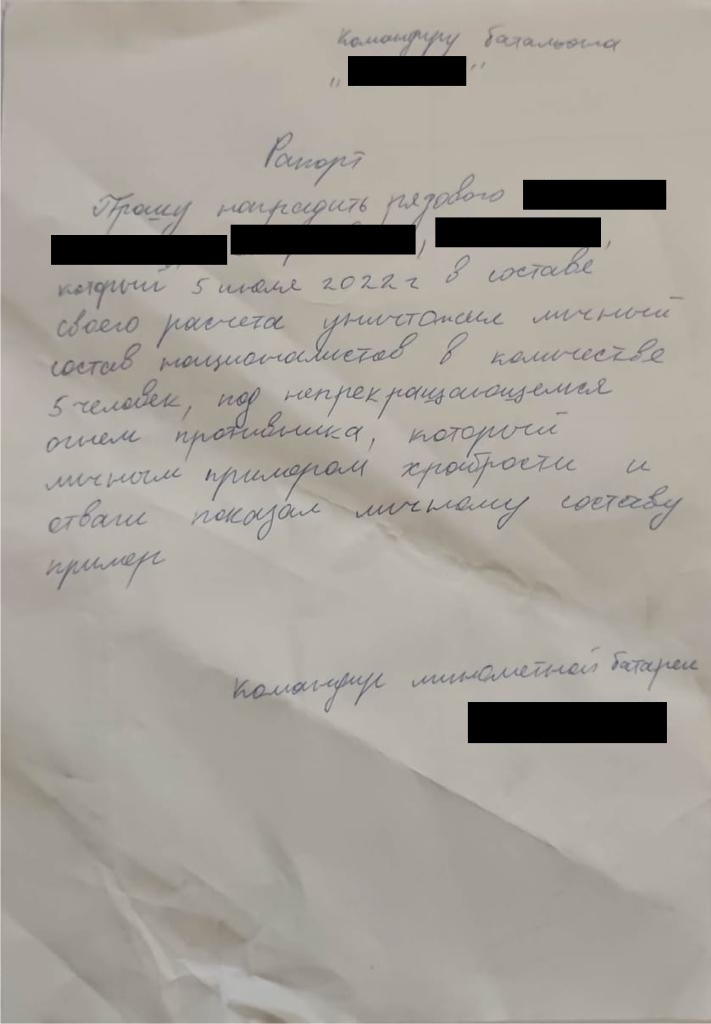 Командиру батальона
" "
Рапорт
Прошу наградить рядового
, ,
который 5 июля 2022 г в составе
своего расчета уничтожил личный
состав националистов в количестве
5 человек, под непрекращающемся
огнем противника, который
личным примером храбрости и
отваги показал личному составу
пример
Командир минометной батареи